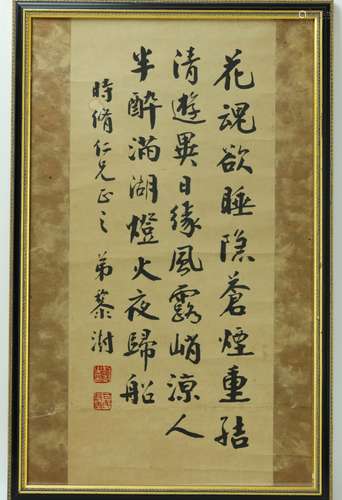 花魂欲睡隐蒼煙重結
清遊異日緣風露峭涼人
半醉滿湖燈火夜歸船
時脩仁兄正之 弟蔡澍